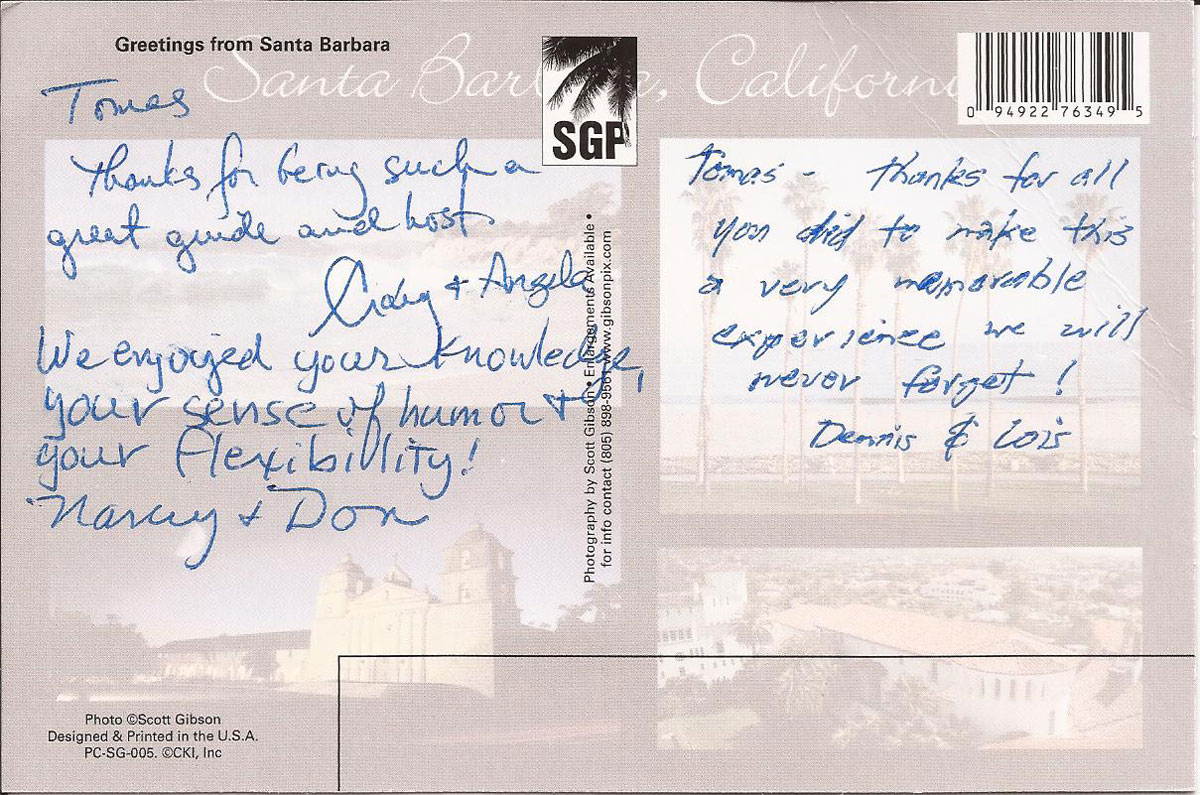 Greetings from Santa Barbara
Santa Barbara, California
SGP
0 94922 76349 5
Tomas
Thanks for being such a
great guide and host
Craig + Angela
We enjoyed your knowledge,
your sense of humor +
your flexibillity!
Nancy + Don
Photography by Scott Gibson • Enlargements Available •
for info contact (805) 898-9561 www.gibsonpix.com
Tomas - thanks for all
you did to make this
a very memorable
experience we will
never forget!
Dennis & Lois
Photo ©Scott Gibson
Designed & Printed in the U.S.A.
PC-SG-005. ©CKI, Inc